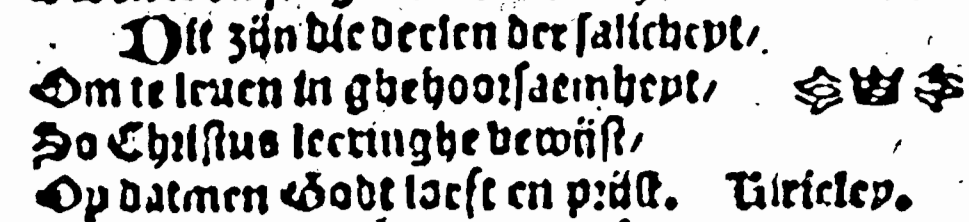 Dit zijn die deelen der salicheyt/
Om te leuen in ghehoorsaemheyt/
So Christus leeringhe bewijst/
Op datmen Godt loeft en prijst.